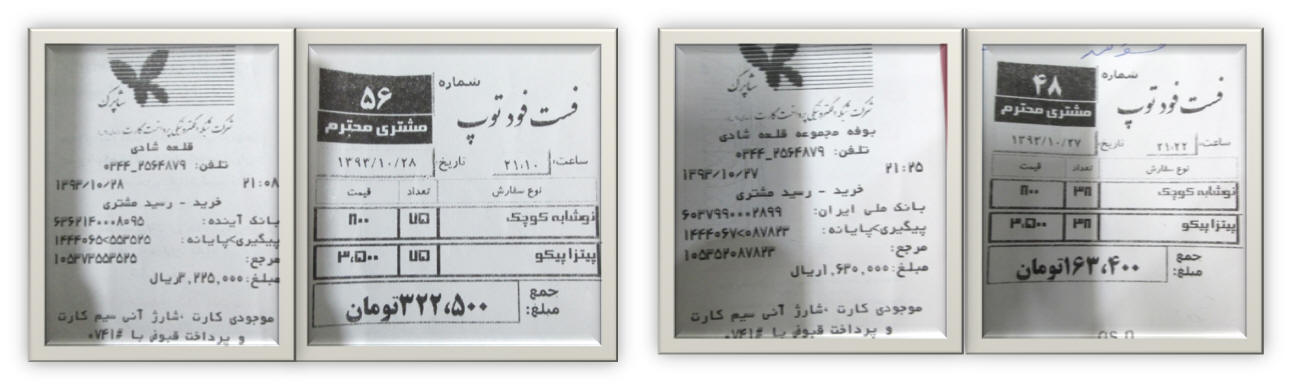 شاپرک
شرکت شبکه الکترونیکی پرداخت کارت
قلعه شادی
تلفن: ۰۳۴۴_۲۵۶۴۸۷۹
۱۳۹۳/۱۰/۲۸ ۲۱:۰۸
خرید - رسید مشتری
بانک آینده: ۶۳۶۲۱۴۰۰۰۸۰۹۵
پیگیری>پایانه: ۱۴۴۴۰۶۵<۵۵۳۵۲۵
مرجع:
۱۰۵۳۷۳۵۵۳۵۲۵
مبلغ: ۳,۲۲۵,۰۰۰ریال
موجودی کارت ،شارژ آنی سیم کارت
و پرداخت قبوض با #۷۴۱*
شماره
۵۶
مشتری محترم
فست فود توپ
ساعت: ۲۱:۱۰ تاریخ: ۱۳۹۳/۱۰/۲۸
نوع سفارش تعداد قیمت
نوشابه کوچک ۷۵ ۸۰۰
پیتزا پیکو ۷۵ ۳،۵۰۰
جمع مبلغ: ۳۲۲،۵۰۰تومان
شاپرک
شرکت شبکه الکترونیکی پرداخت کارت
بوفه مجموعه قلعه شادی
تلفن: ۰۳۴۴_۲۵۶۴۸۷۹
۱۳۹۳/۱۰/۲۷ ۲۱:۲۵
خرید - رسید مشتری
بانک ملی ایران: ۶۰۳۷۹۹۰۰۰۲۸۹۹
پیگیری>پایانه: ۱۴۴۴۰۶۷<۰۸۷۸۲۳
مرجع:
۱۰۵۳۵۲۰۸۷۸۲۳
مبلغ: ۱,۶۳۰,۰۰۰ریال
موجودی کارت ،شارژ آنی سیم کارت
و پرداخت قبوض با #۷۴۱*
شماره
۴۸
مشتری محترم
فست فود توپ
ساعت: ۲۱:۲۲ تاریخ: ۱۳۹۳/۱۰/۲۷
نوع سفارش تعداد قیمت
نوشابه کوچک ۳۸ ۸۰۰
پیتزا پیکو ۳۸ ۳،۵۰۰
جمع مبلغ: ۱۶۳،۴۰۰تومان